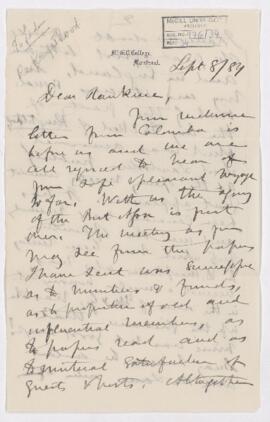 McGILL UNIVERSITY
ARCHIVES
ACC. NO. 
REF.
McGill College,
Montreal.
Sept 8/84
Dear Rankine,
Your welcome
letter from Colombo is
before us and we are
all rejoiced to hear of
your safe & pleasant voyage
so far. With us the agony
of the Brit Assn is just
over. The meeting as you
may see from the papers
I have sent was successful
as to numbers & funds,
as to proportion of old and
influential members, as
to papers read and as
to mutual satisfaction of
guests & hosts. Altogether